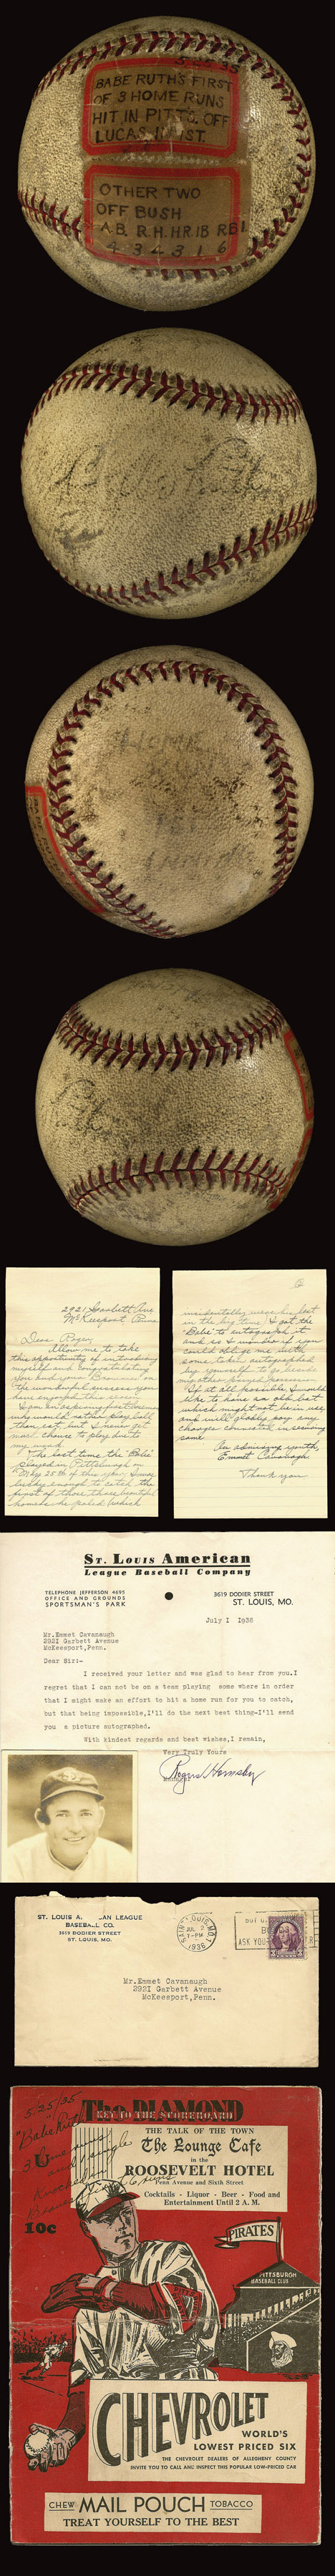 5-25-35
BABE RUTH'S FIRST
OF 3 HOME RUNS
HIT IN PITTS. OFF
LUCAS IN 1ST.
OTHER TWO
OFF BUSH
A.B. R. H. HR TB RBI
4 3 4 3 1 6
2921 Garbett Ave
McKeesport Penna
Dear Roger,
Allow me to take
this opportunity of introducing
myself and congratulating
you and your "Browns" on
the wonderful success you
have enjoyed this season.
I am an
who would rather play ball
than eat but
chance to play due to
my work.
The last time the "Babe"
played in Pittsburgh on
May 25th of this year, I was
lucky enough to catch the
first of those three beautiful
homers he poled (which
incidentally were his last
in the big time) I got the
"Babe" to autograph it
and so I wonder if you
could oblige me with
some token autographed
by yourself to go beside
my other prized possession.
If at all possible I would
like to have an old bat
which might not be in use
and will gladly pay any
charges connected in securing
same.
An admiring youth,
Emmet Cavanaugh
Thank you
ST. LOUIS AMERICAN
League Baseball Company
TELEPHONE JEFFERSON 4695
OFFICE AND GROUNDS
SPORTSMAN'S PARK
3619 DODIER STREET
ST. LOUIS, MO.
July I I936
Mr.Emmet Cavanaugh
292I Garbett Avenue
McKeesport,Penn.
Dear Sir:-
I received your letter and was glad to hear from you.I
regret that I can not be on a team playing some where in order
that I might make an effort to hit a home run for you to catch,
but that being impossible,I'll do the next best thing-I'll send
you a picture autographed.
With kindest regards and best wishes,I remain,
Very Truly Yours
Rogers Hornsby
ST. LOUIS A. AN LEAGUE
BASEBALL CO.
3619 DODIER STREET
ST. LOUIS, MO.
SAINT LOUIS, MO.
JUL 2
1-PM
1936
ASK YOU
Mr.Emmet Cavanaugh
292I Garbett Avenue
McKeesport,Penn.
5/25/35
"Babe Ruth"
3 home runs
and a single
Knocked in
6 runs
Braves
The DIAMOND
KEY TO THE SCOREBOARD
THE TALK OF THE TOWN
The Lounge Cafe
in the
ROOSEVELT HOTEL
Penn Avenue and Sixth Street
Cocktails - Liquor - Beer - Food and
Entertainment Until 2 A. M.
10c
PIRATES
PITTSBURGH
BASEBALL CLUB
CHEVROLET
WORLD'S
LOWEST PRICED SIX
THE CHEVROLET DEALERS OF ALLEGHENY COUNTY
INVITE YOU TO CALL AND INSPECT THIS POPULAR LOW-PRICED CAR
CHEW MAIL POUCH TOBACCO
TREAT YOURSELF TO THE BEST